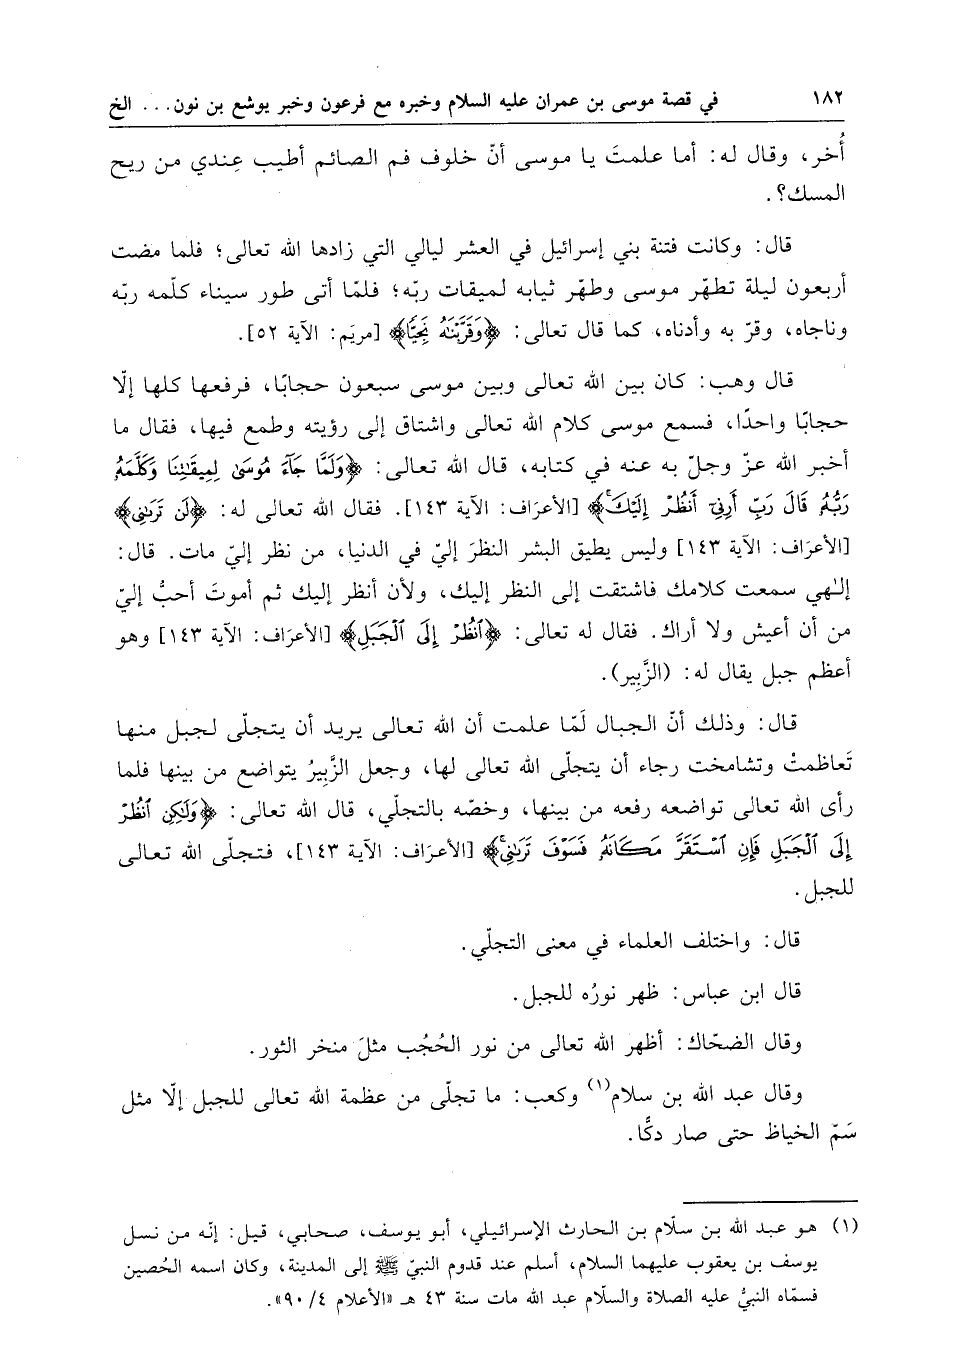 ١٨٢ في قصة موسى بن عمران عليه السلام وخبره مع فرعون وخبر يوشع بن نون. . . الخ
أُخر، وقال له: أما علمتَ يا موسى أنّ خلوف فم الصائم أطيب عِندي من ريح
المسك؟.
قال: وكانت فتنة بني إسرائيل في العشر ليالي التي زادها الله تعالى؛ فلما مضت
أربعون ليلة تطهّر موسى وطهّر ثيابه لميقات ربّه؛ فلمّا أتى طور سيناء كلّمه ربّه
وناجاه، وقرّ به وأدناه، كما قال تعالى: ﴿وَقَرَّبْنَٰهُ نَجِيًّا﴾ [مريَم: الآية ٥٢].
قال وهب: كان بين الله تعالى وبين موسى سبعون حجابًا، فرفعها كلها إلّا
حجابًا واحدًا، فسمع موسى كلام الله تعالى واشتاق إلى رؤيته وطمع فيها، فقال ما
أخبر الله عزّ وجلّ به عنه في كتابه، قال الله تعالى: ﴿وَلَمَّا جَآءَ مُوسَىٰ لِمِيقَٰتِنَا وَكَلَّمَهُۥ
رَبُّهُۥ قَالَ رَبِّ أَرِنِيٓ أَنظُرْ إِلَيْكَۚ﴾ [الأعرَاف: الآية ١٤٣]. فقال الله تعالى له: ﴿لَن تَرَىٰنِي﴾
[الأعرَاف: الآية ١٤٣] وليس يطيق البشر النظرَ إليّ في الدنيا، من نظر إليّ مات. قال:
إلٰهي سمعت كلامك فاشتقت إلى النظر إليك، ولأن أنظر إليك ثم أموتَ أحبُّ إليّ
من أن أعيش ولا أراك. فقال له تعالى: ﴿ٱنظُرْ إِلَى ٱلْجَبَلِ﴾ [الأعرَاف: الآية ١٤٣] وهو
أعظم جبل يقال له: (الزَّبِير).
قال: وذلك أنّ الجبال لَمّا علمت أن الله تعالى يريد أن يتجلّى لجبل منها
تَعاظمتْ وتشامخت رجاء أن يتجلّى الله تعالى لها، وجعل الزَّبِيرُ يتواضع من بينها فلما
رأى الله تعالى تواضعه رفعه من بينها، وخصّه بالتجلّي، قال الله تعالى: ﴿وَلَٰكِنِ ٱنظُرْ
إِلَى ٱلْجَبَلِ فَإِنِ ٱسْتَقَرَّ مَكَانَهُۥ فَسَوْفَ تَرَىٰنِيۚ﴾ [الأعرَاف: الآية ١٤٣]، فتجلّى الله تعالى
للجبل.
قال: واختلف العلماء في معنى التجلّي.
قال ابن عباس: ظهر نورُه للجبل.
وقال الضحّاك: أظهر الله تعالى من نور الحُجُب مثلَ منخر الثور.
وقال عبد الله بن سلام(١) وكعب: ما تجلّى من عظمة الله تعالى للجبل إلّا مثل
سَمّ الخياظ حتى صار دكًّا.
(١) هو عبد الله بن سلّام بن الحارث الإسرائيلي، أبو يوسف، صحابي، قيل: إنّه من نسل
يوسف بن يعقوب عليهما السلام، أسلم عند قدوم النبيّ ﷺ إلى المدينة، وكان اسمه الحُصين
فسمّاه النبيُّ عليه الصلاة والسلّام عبد الله مات سنة ٤٣ هـ «الأعلام ٤/ ٩٠».